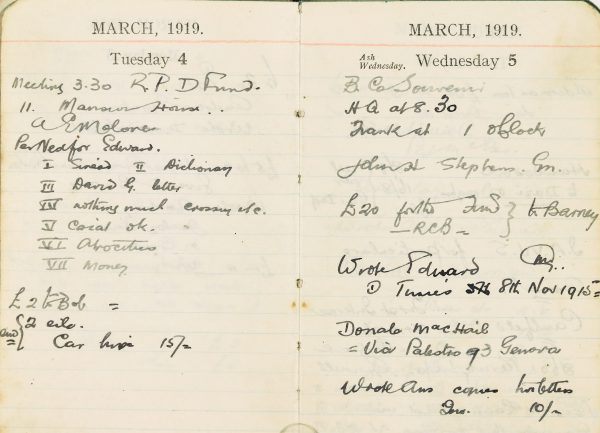 MARCH, 1919.
Tuesday 4
Meeting 3.30 R.P.D Fund.
11. Mansion House.
A E Malone
Per Ned for Edward.
I Sinéad II Dictionary
III David G. letter
IV nothing much crossing etc.
V Casat ok.
VI Atrocities
VII Money
£2 to Bob =
2 Car hire 15/-
MARCH, 1919.
Ash Wednesday. Wednesday 5
B. Co Souvenir
H Q at 8.30
Frank at 1 o'Clock
John H Stephens. Gm.
£20 for the Fund } to Barney
— RCB =
Wrote Eduard
D Times 8th Nov 1915 =
Donald MacHail
= Via Palestro 93 Genova
Wrote Ans copies two letters
10/-